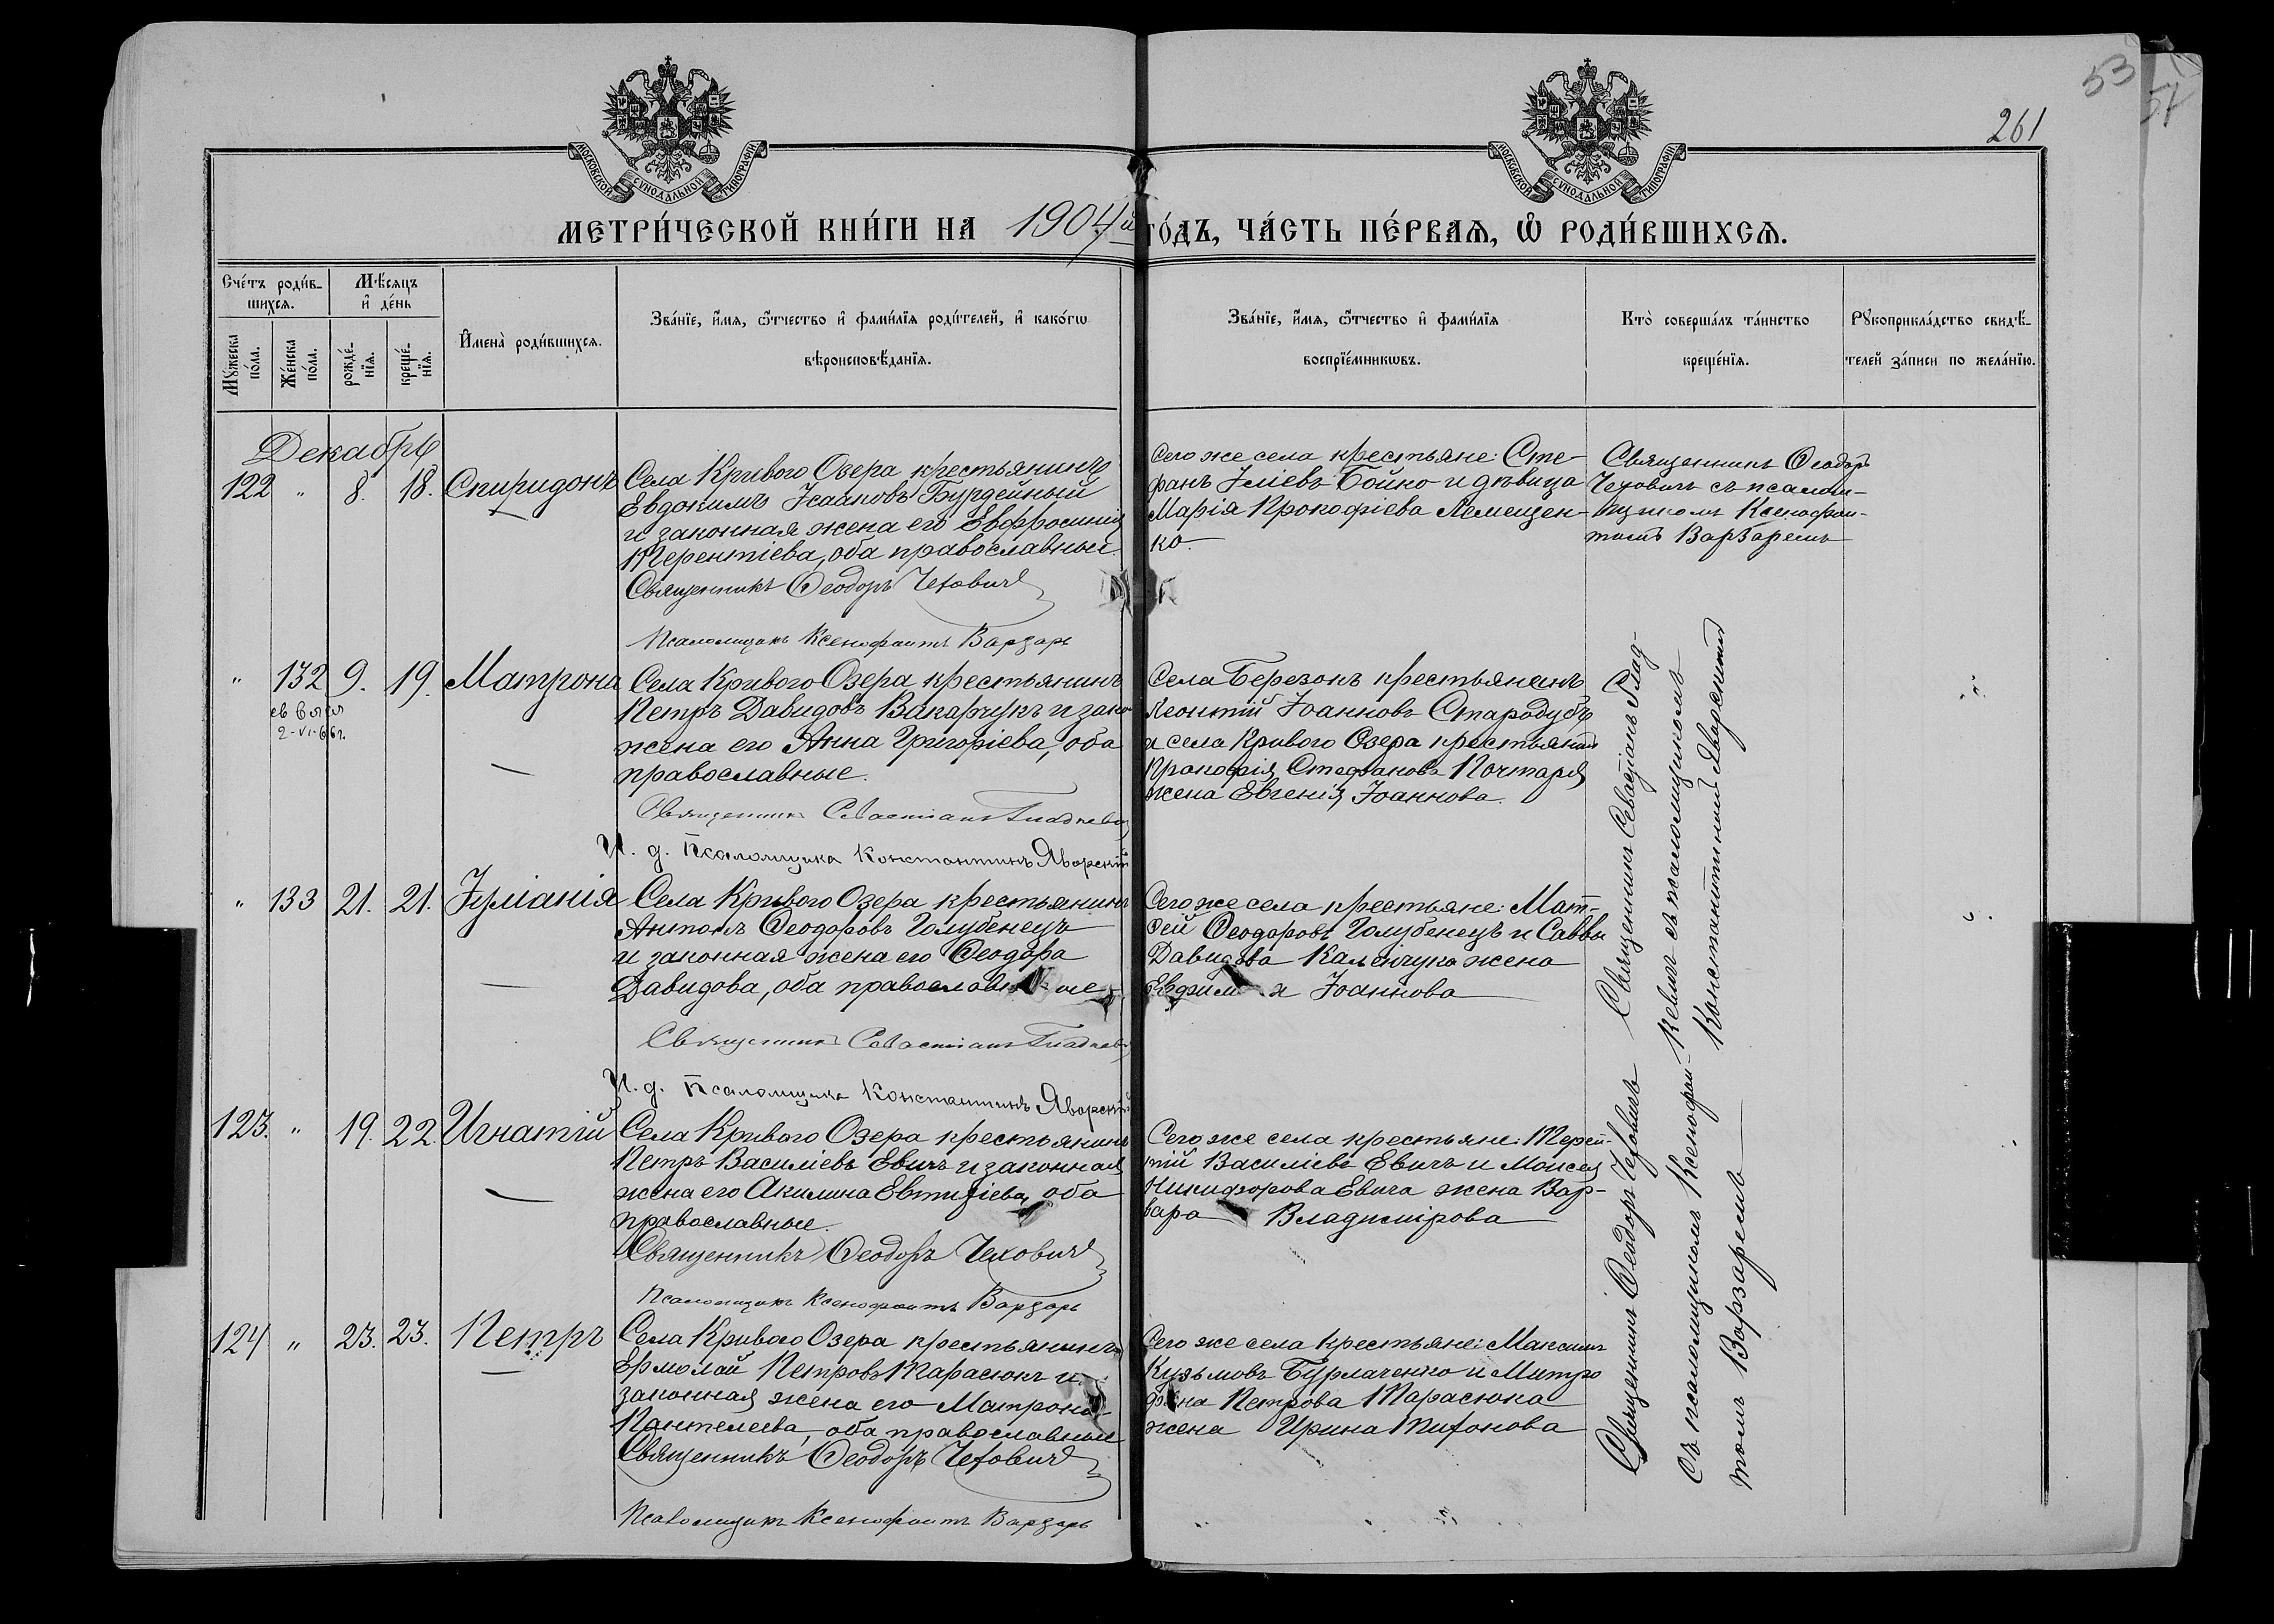 53
57
261
МОСКОВСКОЙ СУНОДАЛЬНОЙ ТИПОГРАФІИ
МОСКОВСКОЙ СУНОДАЛЬНОЙ ТИПОГРАФІИ
МЕТРИ́ЧЕСКОЙ КНИ́ГИ НА 1904й ГО́ДЪ, ЧА́СТЬ ПЕ́РВАѦ, Ѡ҆ РОДИ́ВШИХСѦ.
Сче́тъ роди́в-
шихсѧ.
Мꙋ́жеска по́ла.
Же́нска по́ла.
Мѣ́сѧцъ
и҆ де́нь
рожде́-нїѧ.
креще́-нїѧ.
И҆мена̀ роди́вшихсѧ.
Зва́нїе, и҆́мѧ, ѻ҆́тчество и҆ фами́лїѧ роди́телей, и҆ како́гѡ
вѣроисповѣ́данїѧ.
Зва́нїе, и҆́мѧ, ѻ҆́тчество и҆ фами́лїѧ
воспрїе́мникѡвъ.
Кто̀ соверша́лъ та́инство
креще́нїѧ.
Рꙋкоприкла́дство свидѣ́-
телей за́писи по жела́нїю.
Декабрь
122 " 8. 18. Спиридонъ
Села Кривого Озера крестьянинъ
Евдокимъ Исааковъ Бурдейный
и законная жена его Евфросинія
Терентіева, оба православные.
Священникъ Ѳеодоръ Чехович
Псаломщикъ Ксенофонтъ Варзарь
Сего же села крестьяне: Сте-
фанъ Иліевъ Бойко и дѣвица
Марія Прокофіева Лемещен-
ко.
Священникъ Ѳеодоръ
Чеховичъ съ псалом-
щикомъ Ксенофон-
томъ Варзаремъ
" 132 9. 19. Матрона
2-VI-66г.
Села Кривого Озера крестьянинъ
Петръ Давидовъ Вакарчукъ и зако
жена его Анна Григоріева, оба
православные.
Священникъ Севастіанъ Гладкевич
И. д. Псаломщика Константинъ Яворскій
Села Березокъ крестьянинъ
Леонтій Іоанновъ Стародубъ
и села Кривого Озера крестьянина
Прокофія Стефанова Почтаря
жена Евгенія Іоаннова.
" 133 21. 21. Іуліанія
Села Кривого Озера крестьянинъ
Антонъ Ѳеодоровъ Голубенецъ
и законная жена его Ѳеодора
Давидова, оба православные
Священникъ Севастіанъ Гладкевич
И. д. Псаломщика Константинъ Яворскій
Сего же села крестьяне: Мат-
ѳей Ѳеодоровъ Голубенецъ и Саввы
Давидова Каленчука жена
Евфимія Іоаннова
123. " 19. 22. Игнатій
Села Кривого Озера крестьянинъ
Петръ Василіевъ Евичъ и законная
жена его Акилина Евтихіева, оба
православные.
Священникъ Ѳеодоръ Чехович
Псаломщикъ Ксенофонтъ Варзарь
Сего же села крестьяне: Терен-
тій Василіевъ Евичъ и Моисея
Никифорова Евича жена Вар-
вара Владимірова
124 " 23. 23. Петръ
Села Кривого Озера крестьянинъ
Ермолай Петровъ Тарасюкъ и
законная жена его Матрона
Пантелеева, оба православные
Священникъ Ѳеодоръ Чехович
Псаломщикъ Ксенофонтъ Варзарь
Сего же села крестьяне: Максимъ
Кузьмовъ Бурлаченко и Митро
фана Петрова Тарасюка
жена Ирина Тихонова
Священникъ Севастіанъ Глад-
кевичъ съ псаломщикомъ
Константиномъ Яворскимъ
Священникъ Ѳеодоръ Чеховичъ
съ псаломщикомъ Ксенофон-
томъ Варзаремъ